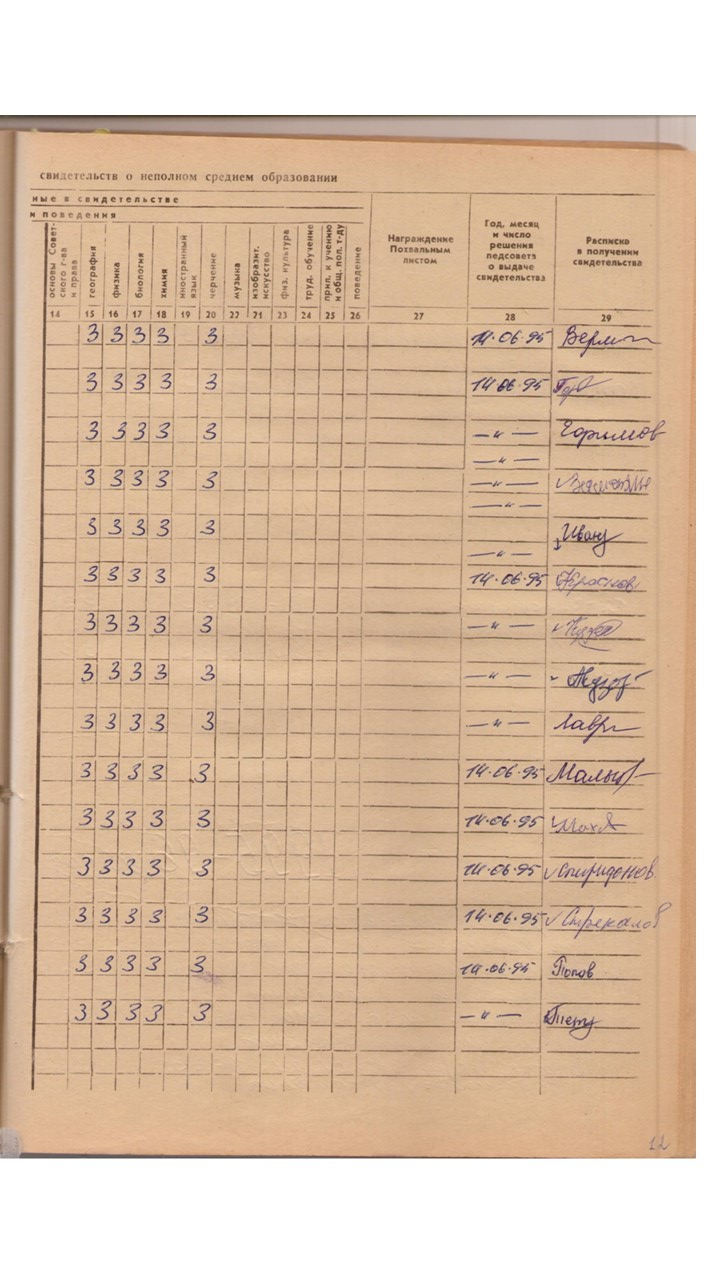 свидетельств о неполном среднем образовании
ные в свидетельстве
и поведения
основы Совет-
ского г-ва
и права
география
физика
биология
химия
иностранный
язык
черчение
музыка
изобразит.
искусство
физ. культура
труд. обучение
прил. к учению
и общ. пол. т-ду
поведение
Награждение
Похвальным
листом
Год, месяц
и число
решения
педсовета
о выдаче
свидетельства
Расписка
в получении
свидетельства
14 15 16 17 18 19 20 22 21 23 24 25 26 27 28 29
3 3 3 3 3 14.06.95
3 3 3 3 3 14.06.95
3 3 3 3 3 —"—
—"—
3 3 3 3 3 —"—
—"—
3 3 3 3 3
—"—
3 3 3 3 3 14.06.95
3 3 3 3 3 —"—
3 3 3 3 3 —"—
3 3 3 3 3 —"— Лавр
3 3 3 3 3 14.06.95
3 3 3 3 3 14.06.95
3 3 3 3 3 14.06.95 Спиридонов
3 3 3 3 3 14.06.95 Стрекалов
3 3 3 3 3 14.06.95 Попов
3 3 3 3 3 —"—
12